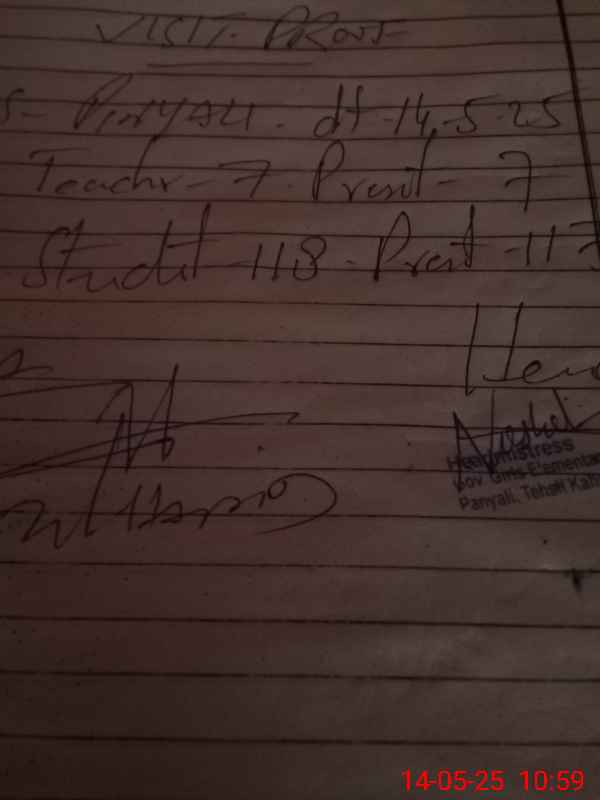 VISIT PROOF
PINYALI. dt-14-5-25
Teachr-7. Presnt-7
Studnt 118. Presnt-117
Hea
Headmistress
Gov. Girls Elementar
Panyali, Tehsil Kah
14-05-25 10:59